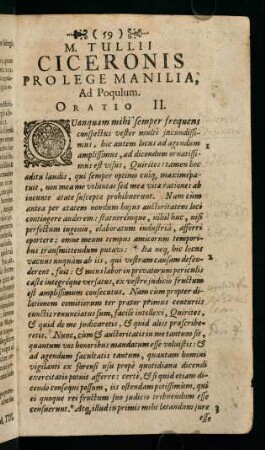 ( 59 )
M. TULLII
CICERONIS
PRO LEGE MANILIA,
Ad Poqulum.
ORATIO II.
QVanquam mihi semper frequens
conspectus vester multò jucundissi-
mus, hic autem locus ad agendum
amplissimus, ad dicendum ornatissi-
mus est visus, Quirites: tamen hoc
aditu laudis, qui semper optimo cuiq, maximè pa-
tuit, non mea me voluntas sed mea vitæ rationes ab
ineunte ætate susceptæ prohibuerunt. Nam cùm
antea per ætatem nondum hujus auctoritatem loci
contingere auderem: statueremque, nihil huc, nisi
perfectum ingenio, elaboratum industriâ, afferri
oportere: omne meum tempus amicorum tempori-
bus transmittendum putavi: * Ita neq, hic locus
vacuus unquam ab iis, qui vestram causam defen-
derent, fuit: & meus labor in privatorum periculis
castè integréque versatus, ex vestro judicio fructum
est amplissimum consecutus. Nam cùm propter di-
lationem comitiorum ter prætor primus centuriis
cunctis renunciatus sum, facilè intellexi, Quirites,
& quid de me judicaretis, & quid aliis præscribe-
retis. Nunc, cùm & auctoritatis in me tantum sit,
quantum vos honoribus mandatum esse voluistis: &
ad agendum facultatis tantum, quantum homini
vigilanti ex forensi usu propè quotidiana dicendi
exercitatio potuit afferre: certè, & si quid etiam di-
cendo consequi possum, iis ostendam potissimum, qui
ei quoque rei fructum suo judicio tribuendum esse
censuerunt. * Atq, illud in primis mihi lætandum jure
esse
1
2
3